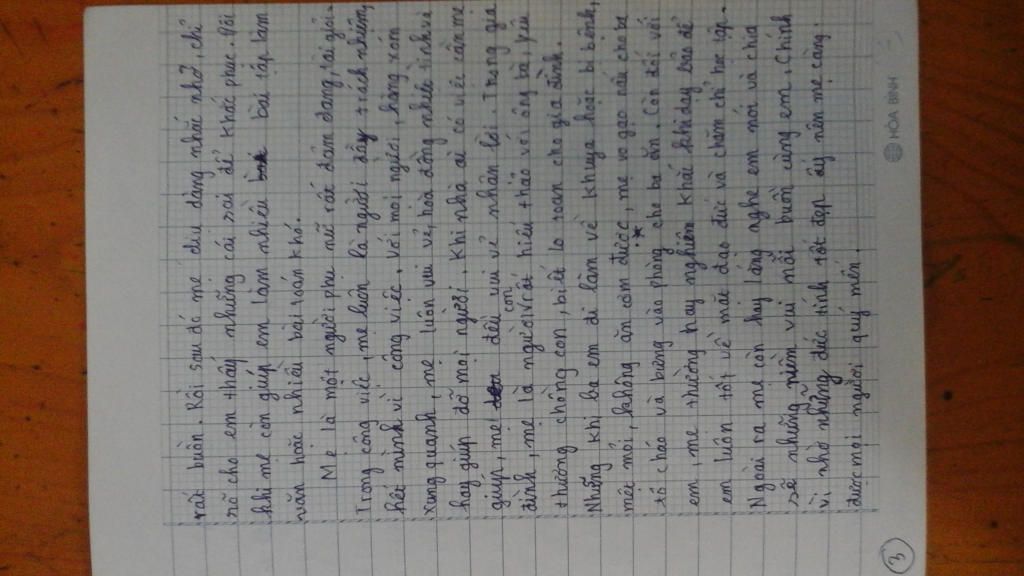 rất buồn. Rồi sau đó mẹ dịu dàng nhắc nhở, chỉ
rõ cho em thấy những cái sai để khắc phục. Đôi
khi mẹ còn giúp em làm nhiều bài tập làm
văn hoặc nhiều bài toán khó.
Mẹ là một người phụ nữ rất đảm đang, tài giỏi.
Trong công việc, mẹ luôn là người đầy trách nhiệm,
hết mình vì công việc, với mọi người, hàng xóm
xung quanh, mẹ luôn vui vẻ, hòa đồng nhiệt tình và
hay giúp đỡ mọi người. Khi nhà ai có việc cần mẹ
giúp, mẹ đều vui vẻ nhận lời. Trong gia
đình, mẹ là người con rất hiếu thảo với ông bà, yêu
thương chồng con, biết lo toan cho gia đình.
Những khi ba em đi làm về khuya hoặc bị bệnh,
mệt mỏi, không ăn cơm được, mẹ vo gạo nấu cho ba
tô cháo và biêng vào phòng cho ba ăn. Còn đối với
em, mẹ thường hay nghiêm khắc khi dạy bảo để
em luôn tốt về mặt đạo đức và chăm chỉ học tập.
Ngoài ra mẹ còn hay lắng nghe em nói và chia
sẻ những niềm vui nỗi buồn cùng em. Chính
vì nhờ những đức tính tốt đẹp ấy nên mẹ càng
được mọi người quý mến.
3
HÒA BÌNH